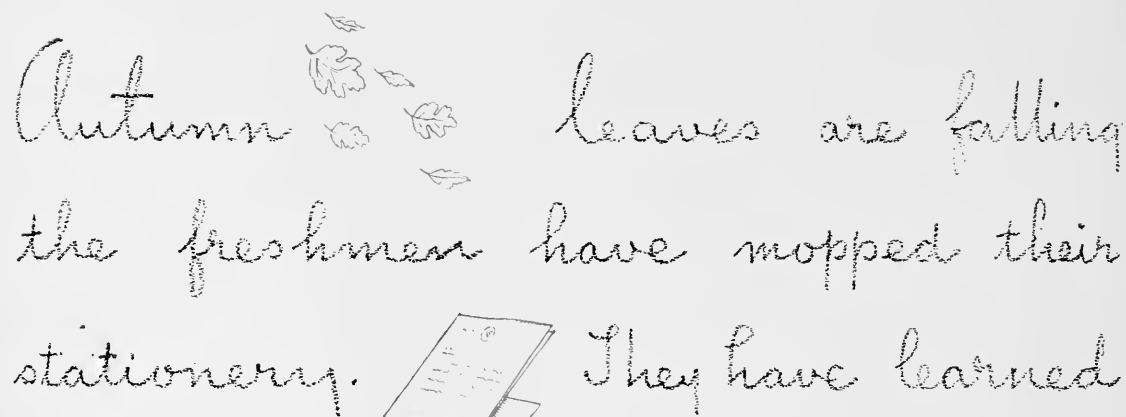 Autumn leaves are falling
the freshmen have mopped their
stationery. They have learned